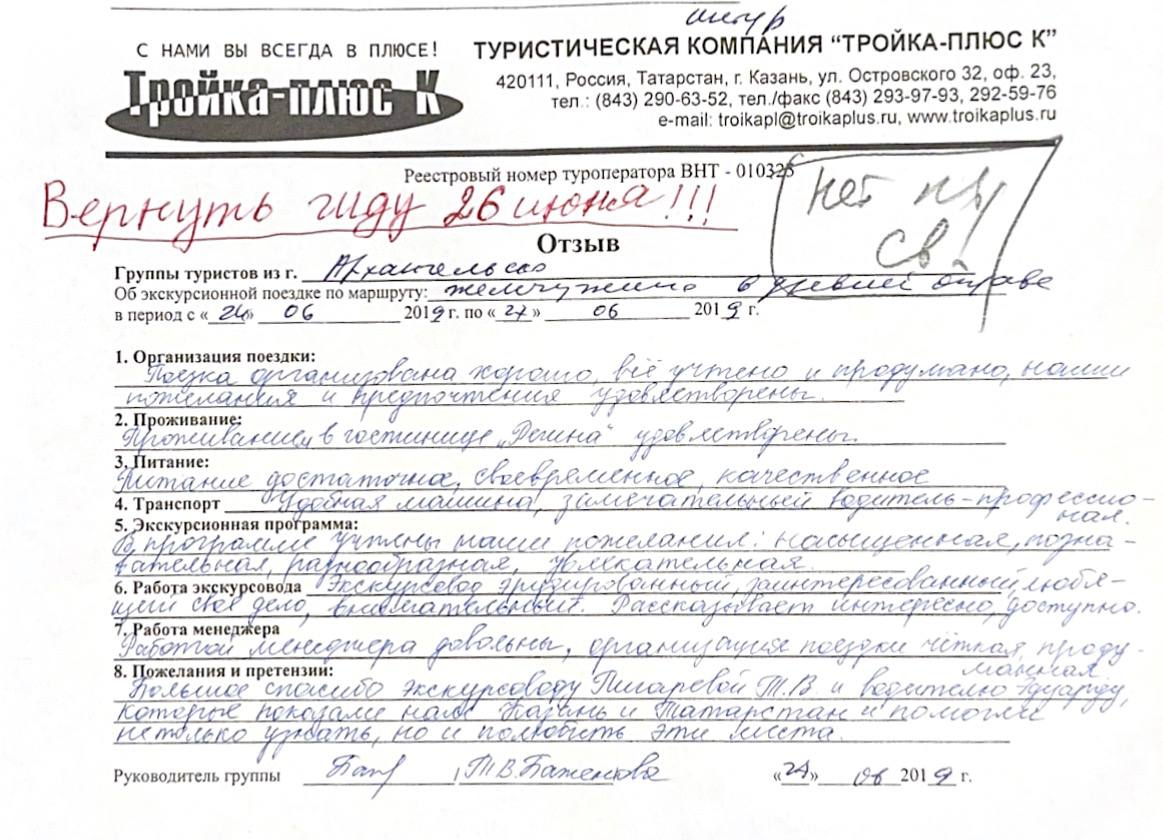 интур
С НАМИ ВЫ ВСЕГДА В ПЛЮСЕ!
Тройка-плюс К
ТУРИСТИЧЕСКАЯ КОМПАНИЯ “ТРОЙКА-ПЛЮС К”
420111, Россия, Татарстан, г. Казань, ул. Островского 32, оф. 23,
тел.: (843) 290-63-52, тел./факс (843) 293-97-93, 292-59-76
e-mail: troikapl@troikaplus.ru, www.troikaplus.ru
Реестровый номер туроператора ВНТ - 010325
Вернуть гиду 26 июня!!!
нет
св!
Отзыв
Группы туристов из г. Архангельска
Об экскурсионной поездке по маршруту: жемчужина в древней оправе
в период с «24» 06 2019 г. по «27» 06 2019 г.
1. Организация поездки:
Поезка организована хорошо, всё учтено и продумано, наши
пожелания и предпочтения удовлетворены.
2. Проживание:
Проживанием в гостинице „Регина“ удовлетворены.
3. Питание:
Питание достаточное, своевременное, качественное
4. Транспорт Удобная машина, замечательный водитель-профессио-
нал.
5. Экскурсионная программа:
В программе учтены наши пожелания: насыщенная, позна-
вательная, разнообразная, увлекательная.
6. Работа экскурсовода Экскурсовод эрудированный, заинтересованный, любя-
щий своё дело, внимательный. Рассказывает интересно, доступно.
7. Работа менеджера
Работой менеджера довольны, организация поездки чёткая, проду-
манная.
8. Пожелания и претензии:
Большое спасибо экскурсоводу Пигаревой Т.В. и водителю Эдуарду,
которые показали нам Казань и Татарстан и помогли
не только узнать, но и полюбить эти места.
Руководитель группы / Т.В.Баженова «27» 06 2019 г.